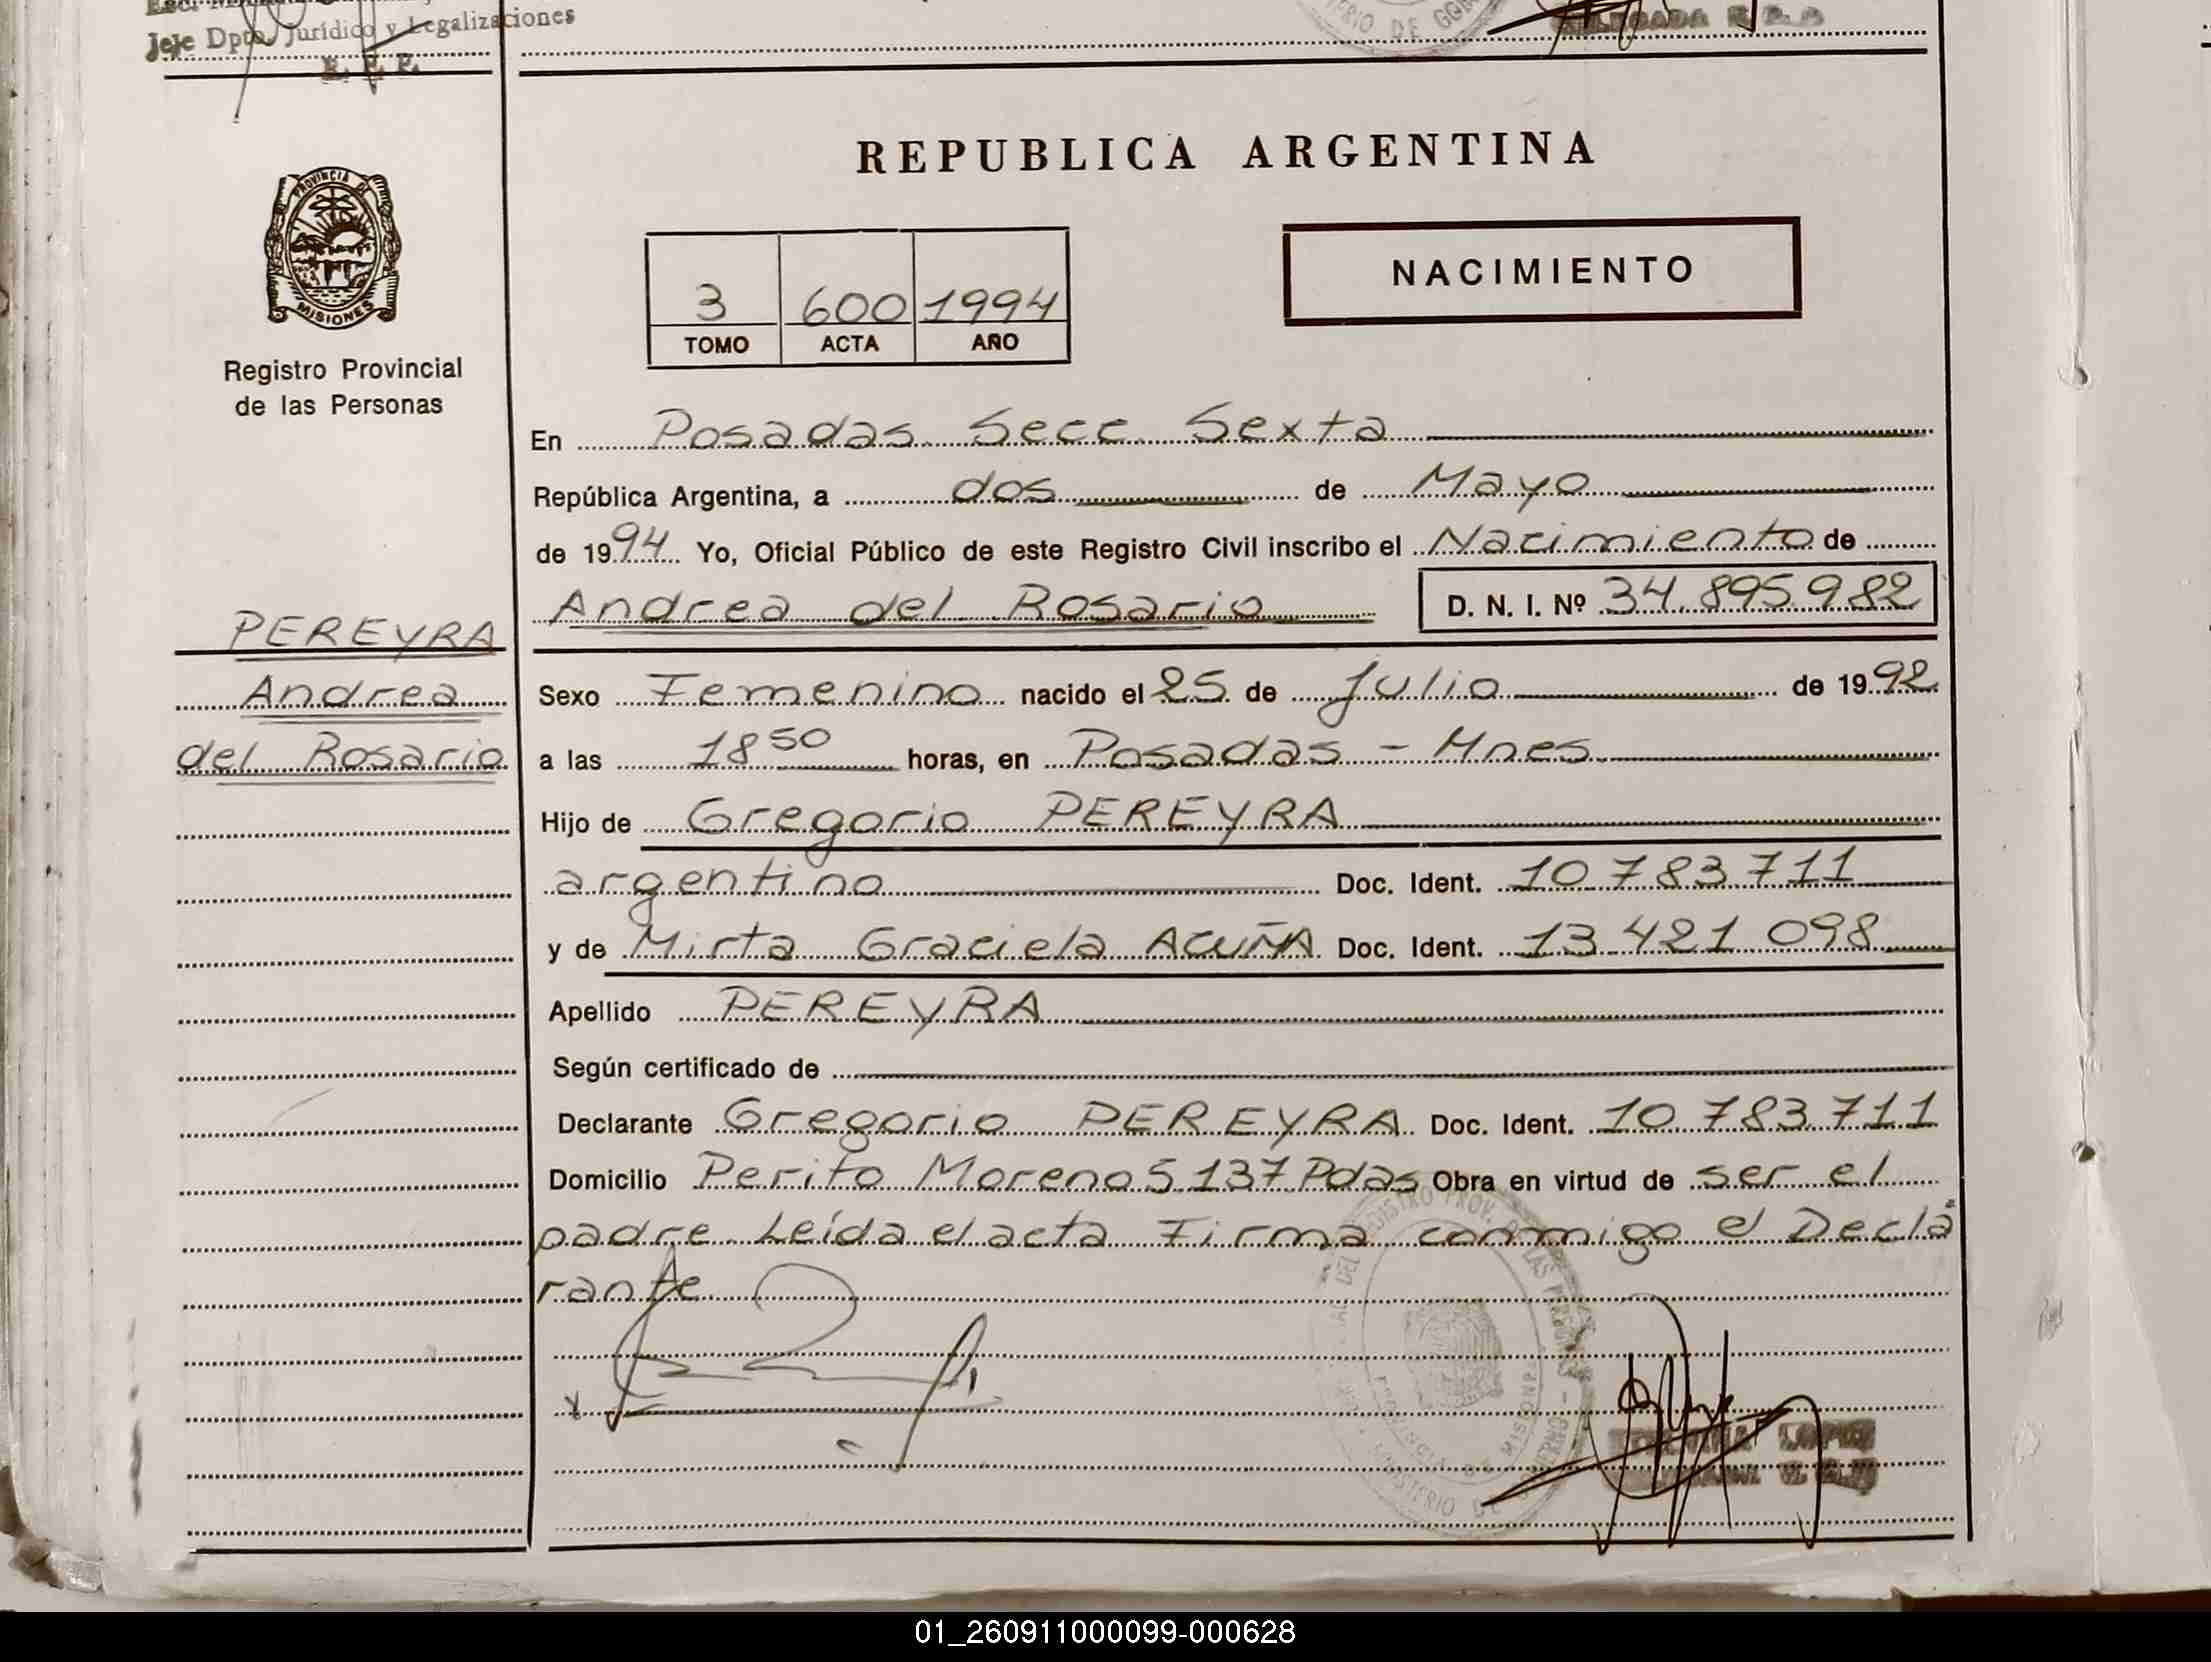 Jefe Dpto. Jurídico y Legalizaciones
R. P. P.
REPUBLICA ARGENTINA
PROVINCIA DE
MISIONES
Registro Provincial
de las Personas
3 600 1994
TOMO ACTA AÑO
NACIMIENTO
En Posadas Secc Sexta
República Argentina, a dos de Mayo
de 1994 Yo, Oficial Público de este Registro Civil inscribo el Nacimiento de
Andrea del Rosario D. N. I. Nº 34.895982
PEREYRA
Andrea
del Rosario
Sexo Femenino nacido el 25 de Julio de 1992
a las 18 50 horas, en Posadas - Mnes
Hijo de Gregorio PEREYRA
argentino Doc. Ident. 10 783 711
y de Mirta Graciela ACUÑA Doc. Ident. 13 421 098
Apellido PEREYRA
Según certificado de
Declarante Gregorio PEREYRA Doc. Ident. 10 783.711
Domicilio Perito Moreno 5137 Pdas Obra en virtud de ser el
padre. Leída el acta Firma conmigo el Decla
rante.
01_260911000099-000628